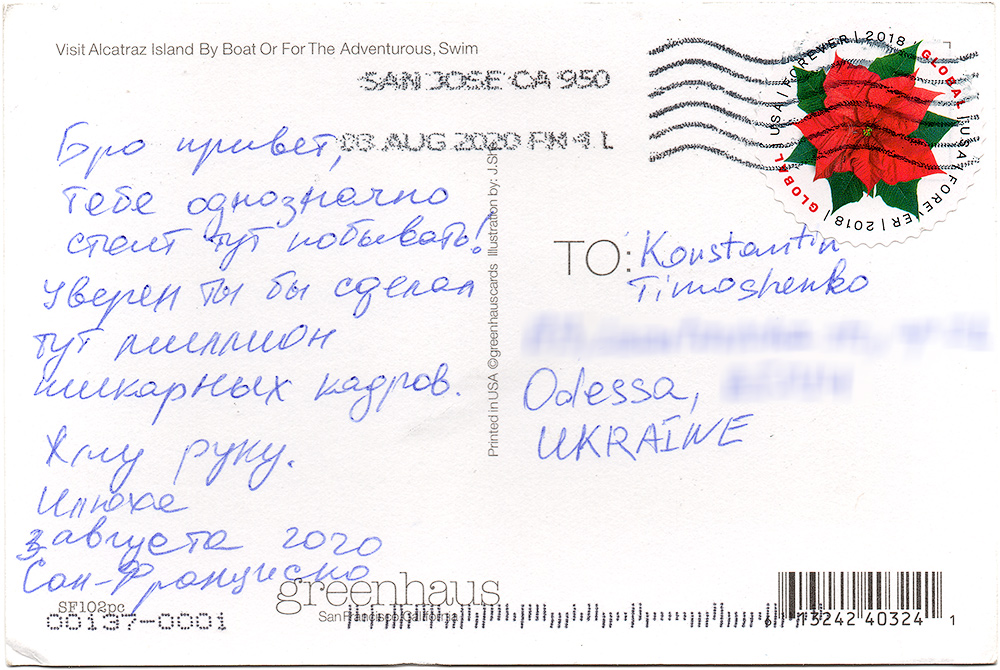 Visit Alcatraz Island By Boat Or For The Adventurous, Swim
SAN JOSE CA 950
03 AUG 2020 PM 4 L
GLOBAL | USA | FOREVER | 2018 | GLOBAL | USA | FOREVER | 2018 |
Бро привет,
тебе однозначно
стоит тут побывать!
Уверен ты бы сделал
тут миллион
шикарных кадров.
Жму руку.
Илюха
3 августа 2020
Сан-Франциско
Printed in USA © greenhauscards Illustration by: J.Sh
TO: Konstantin
Timoshenko
Odessa,
UKRAINE
greenhaus
San Francisco, California
SF102pc
00137-0001
6 13242 40324 1